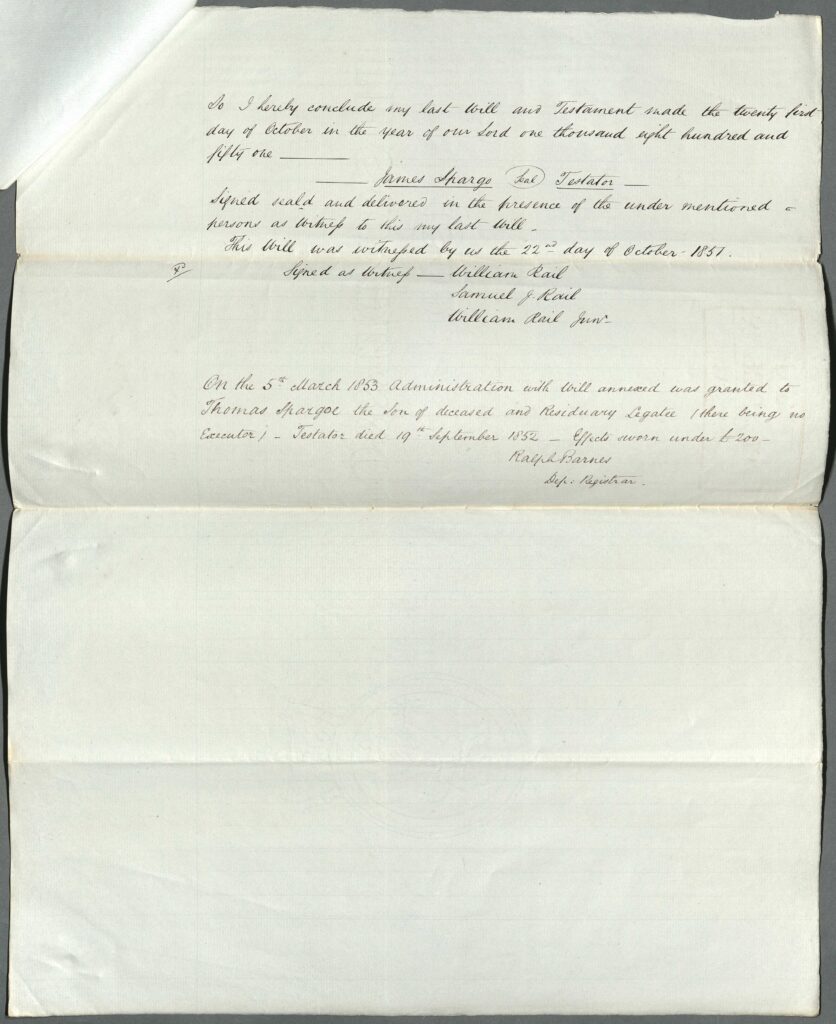 So I hereby conclude my last Will and Testament made the twenty first
day of October in the year of our Lord one thousand eight hundred and
fifty one ———
——— James Spargo (Seal) Testator —
Signed seal'd and delivered in the presence of the under mentioned -
persons as Witness to this my last Will -
This Will was witnessed by us the 22nd day of October - 1851.
Signed as Witness — William Rail
Samuel J. Rail
William Rail Junr
On the 5th March 1853 Administration with Will annexed was granted to
Thomas Spargoe the Son of deceased and Residuary Legatee (there being no
Executor) - Testator died 19th September 1852 - Effects sworn under £200 -
Ralph Barnes
Dep. Registrar.